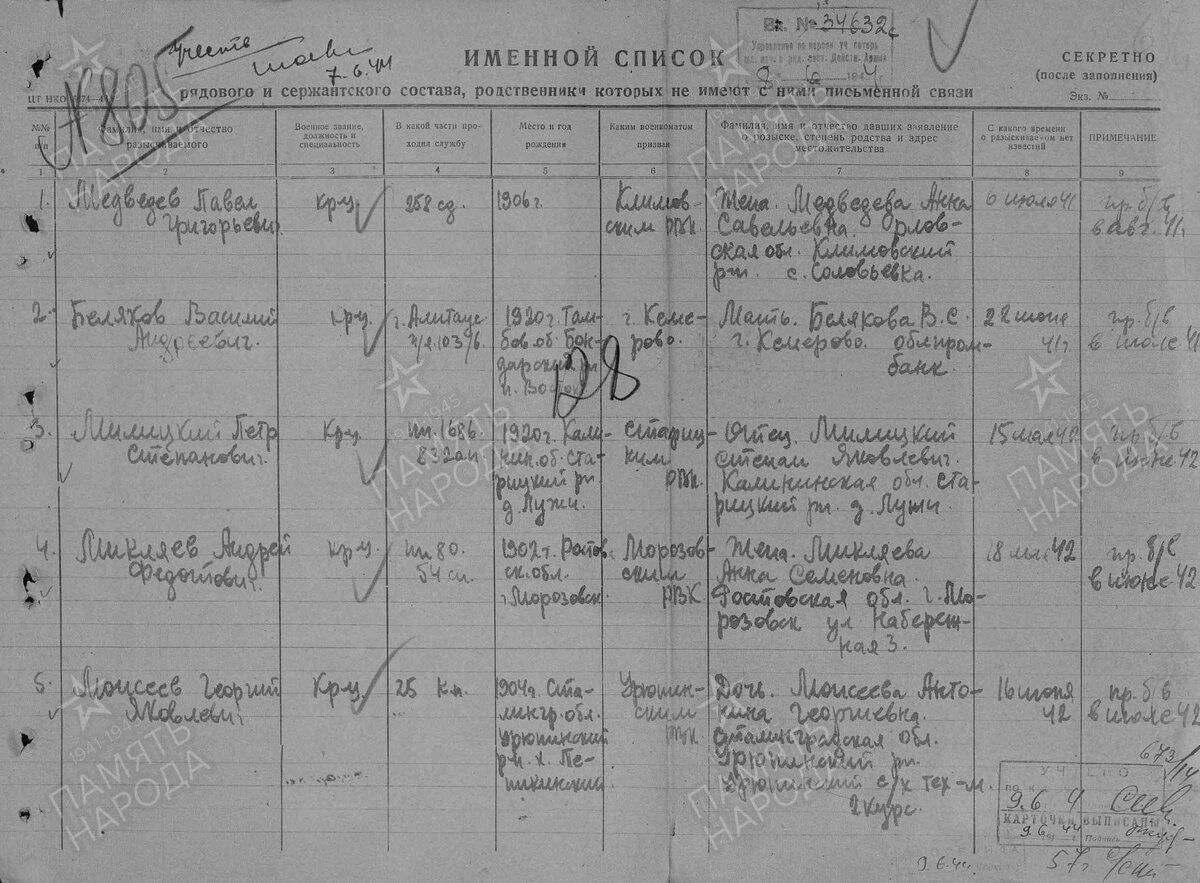 Учесть
7.6.44
N805
Вх. № 34632с
Управление по персон. уч. потерь
8 6 1944.
ИМЕННОЙ СПИСОК
СЕКРЕТНО
(после заполнения)
Экз. №
рядового и сержантского состава, родственники которых не имеют с ними письменной связи
№№ п/п
Фамилия, имя и отчество разыскиваемого
Военное звание, должность и специальность
В какой части проходил службу
Место и год рождения
Каким военкоматом призван
Фамилия, имя и отчество давших заявление о розыске, степень родства и адрес местожительства
С какого времени о разыскиваемом нет известий
ПРИМЕЧАНИЕ
1 2 3 4 5 6 7 8 9
1. Медведев Павел кр-ц 258 сд. 1906 г. Климов- Жена. Медведева Анна 6 июля 41 пр. б/в
Григорьевич. ским РВК. Савельевна. Орлов- в авг. 41 г
ская обл. Климовский
рн. с. Соловьевка.
2. Беляков Василий кр-ц. г. Алитаус 1920 г. Там- г. Кеме- Мать. Белякова В. С. 22 июня пр. б/в
Андреевич. п/я. 103/6. бов. об. Бон- рово. г. Кемерово. облпром- 41 г. в июле 41
дарский р банк.
128
3. Милицкий Петр кр-ц. пп. 1686. 1920 г. Кали- Стариц- Отец. Милицкий 15 мая 42 пр. б/в
Степанович. 832 ап нин. об. Ста- ким Степан Яковлевич. в июне 42
рицкий рн. РВК. Калининская обл. Ста-
д. Лужи. рицкий рн. д. Лужи.
4. Микляев Андрей кр-ц. пп 80. 1902 г. Ростов. Морозов- Жена. Микляева 18 мая 42 пр. б/в
Федотович. 54 сп. ск. обл. ским Анна Семеновна. в июне 42
г. Морозовск. РВК Ростовская обл. г. Мо-
розовск ул Набереж-
ная 3.
5. Моисеев Георгий кр-ц 25 к.п. 1904 г. Ста- Урюпин- Дочь. Моисеева Анто- 16 июня пр. б/в
Яковлевич лингр. обл. ским нина Георгиевна. 42 в июле 42
Урюпинский РВК. Сталинградская обл.
рн. х. Пе- Урюпинский рн.
Урюпинский с/х тех-м.
2 курс.
673/14
УЧТЕНО
9.6 4
КАРТОЧКИ ВЫПИСАНЫ
9.6.44 г. Подпись
9.6.44
57г
ПАМЯТЬ НАРОДА
1941-1945